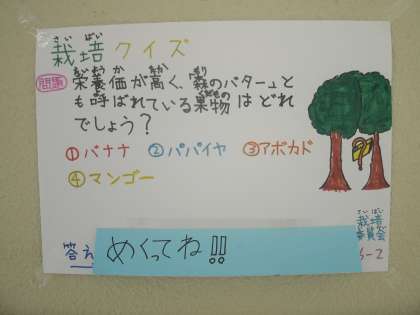 栽培クイズ
さい ばい
問題
栄養価が高く、森のバターと
えいよう か たか もり
も呼ばれている果物はどれ
よ くだもの
でしょう?
①バナナ ②パパイヤ ③アボカド
④マンゴー
さい ばい
栽培
委員会
答え
めくってね!!